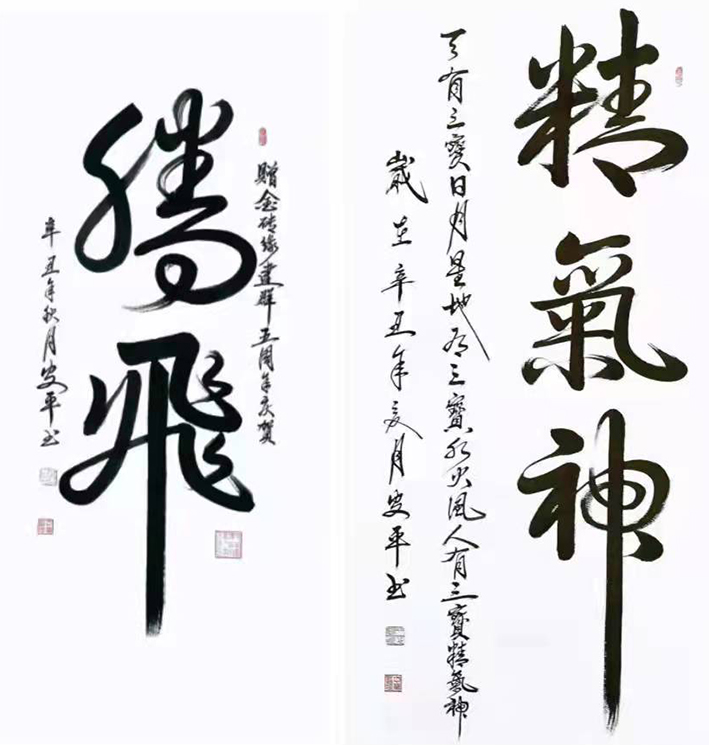 贈金砖缘建群五周年庆賀
騰飛
辛丑年秋月安平书
精氣神
天有三寶日月星地有三寶水火風人有三寶精氣神
歲在辛丑年夏月安平书